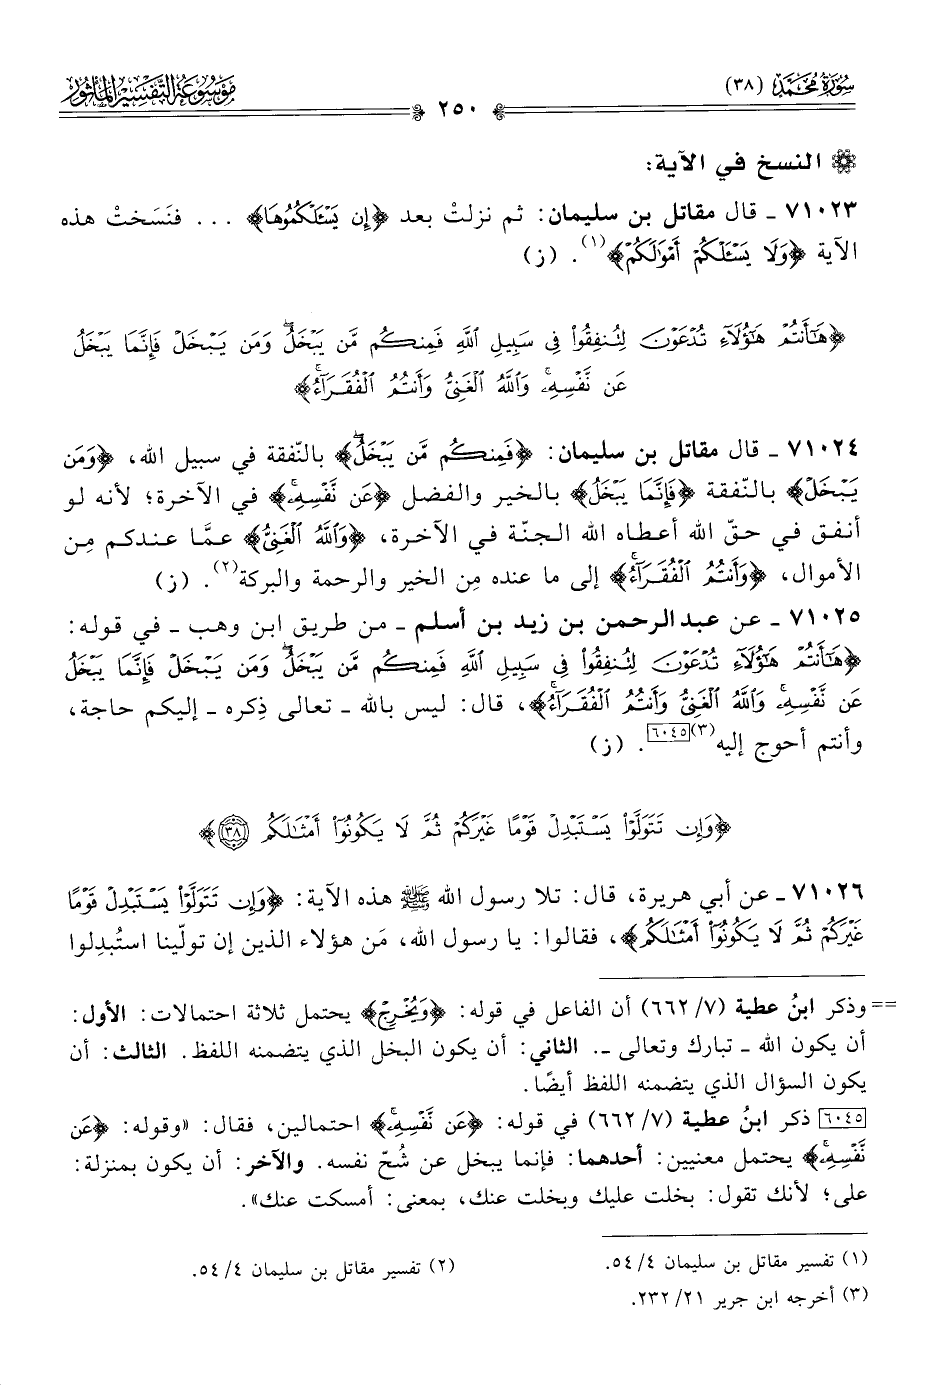 سُورَةُ مُحَمَّدٍ (٣٨)
٢٥٠
مَوْسُوعَةُ التَّفْسِيرِ المَأْثُورِ
النسخ في الآية:
٧١٠٢٣ ـ قال مقاتل بن سليمان: ثم نزلتْ بعد ﴿إِن يَسْـَٔلْكُمُوهَا﴾ ... فنَسَختْ هذه
الآية ﴿وَلَا يَسْـَٔلْكُمْ أَمْوَٰلَكُمْ﴾(١). (ز)
﴿هَـٰٓأَنتُمْ هَـٰٓؤُلَآءِ تُدْعَوْنَ لِتُنفِقُوا۟ فِى سَبِيلِ ٱللَّهِ فَمِنكُم مَّن يَبْخَلُ ۖ وَمَن يَبْخَلْ فَإِنَّمَا يَبْخَلُ
عَن نَّفْسِهِۦ ۚ وَٱللَّهُ ٱلْغَنِىُّ وَأَنتُمُ ٱلْفُقَرَآءُ ۚ﴾
٧١٠٢٤ ـ قال مقاتل بن سليمان: ﴿فَمِنكُم مَّن يَبْخَلُ ۖ﴾ بالنّفقة في سبيل الله، ﴿وَمَن
يَبْخَلْ﴾ بالنّفقة ﴿فَإِنَّمَا يَبْخَلُ﴾ بالخير والفضل ﴿عَن نَّفْسِهِۦ ۚ﴾ في الآخرة؛ لأنه لو
أنفق في حقّ الله أعطاه الله الجنّة في الآخرة، ﴿وَٱللَّهُ ٱلْغَنِىُّ﴾ عمَّا عندكم مِن
الأموال، ﴿وَأَنتُمُ ٱلْفُقَرَآءُ ۚ﴾ إلى ما عنده مِن الخير والرحمة والبركة(٢). (ز)
٧١٠٢٥ ـ عن عبد الرحمن بن زيد بن أسلم ـ من طريق ابن وهب ـ في قوله:
﴿هَـٰٓأَنتُمْ هَـٰٓؤُلَآءِ تُدْعَوْنَ لِتُنفِقُوا۟ فِى سَبِيلِ ٱللَّهِ فَمِنكُم مَّن يَبْخَلُ ۖ وَمَن يَبْخَلْ فَإِنَّمَا يَبْخَلُ
عَن نَّفْسِهِۦ ۚ وَٱللَّهُ ٱلْغَنِىُّ وَأَنتُمُ ٱلْفُقَرَآءُ ۚ﴾، قال: ليس بالله ـ تعالى ذِكره ـ إليكم حاجة،
وأنتم أحوج إليه(٣)[٦٠٤٥]. (ز)
﴿وَإِن تَتَوَلَّوْا۟ يَسْتَبْدِلْ قَوْمًا غَيْرَكُمْ ثُمَّ لَا يَكُونُوٓا۟ أَمْثَـٰلَكُم ٣٨﴾
٧١٠٢٦ ـ عن أبي هريرة، قال: تلا رسول الله ﷺ هذه الآية: ﴿وَإِن تَتَوَلَّوْا۟ يَسْتَبْدِلْ قَوْمًا
غَيْرَكُمْ ثُمَّ لَا يَكُونُوٓا۟ أَمْثَـٰلَكُم﴾، فقالوا: يا رسول الله، مَن هؤلاء الذين إن تولّينا استُبدِلوا
== وذكر ابنُ عطية (٧/ ٦٦٢) أن الفاعل في قوله: ﴿وَيُخْرِجْ﴾ يحتمل ثلاثة احتمالات: الأول:
أن يكون الله ـ تبارك وتعالى ـ. الثاني: أن يكون البخل الذي يتضمنه اللفظ. الثالث: أن
يكون السؤال الذي يتضمنه اللفظ أيضًا.
[٦٠٤٥] ذكر ابنُ عطية (٧/ ٦٦٢) في قوله: ﴿عَن نَّفْسِهِۦ ۚ﴾ احتمالين، فقال: «وقوله: ﴿عَن
نَّفْسِهِۦ ۚ﴾ يحتمل معنيين: أحدهما: فإنما يبخل عن شُحّ نفسه. والآخر: أن يكون بمنزلة:
على؛ لأنك تقول: بخلت عليك وبخلت عنك، بمعنى: أمسكت عنك».
(١) تفسير مقاتل بن سليمان ٤/ ٥٤.
(٢) تفسير مقاتل بن سليمان ٤/ ٥٤.
(٣) أخرجه ابن جرير ٢١/ ٢٣٢.